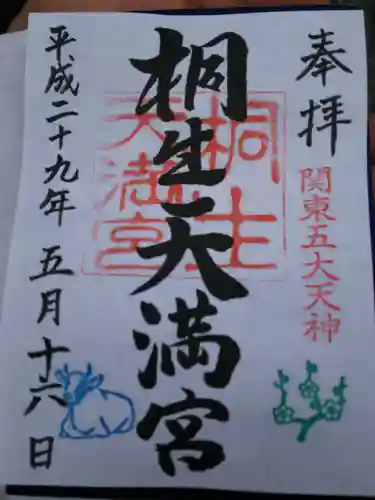 奉拝
関東五大天神
桐生天満宮
桐生
天満宮
平成二十九年 五月十六日